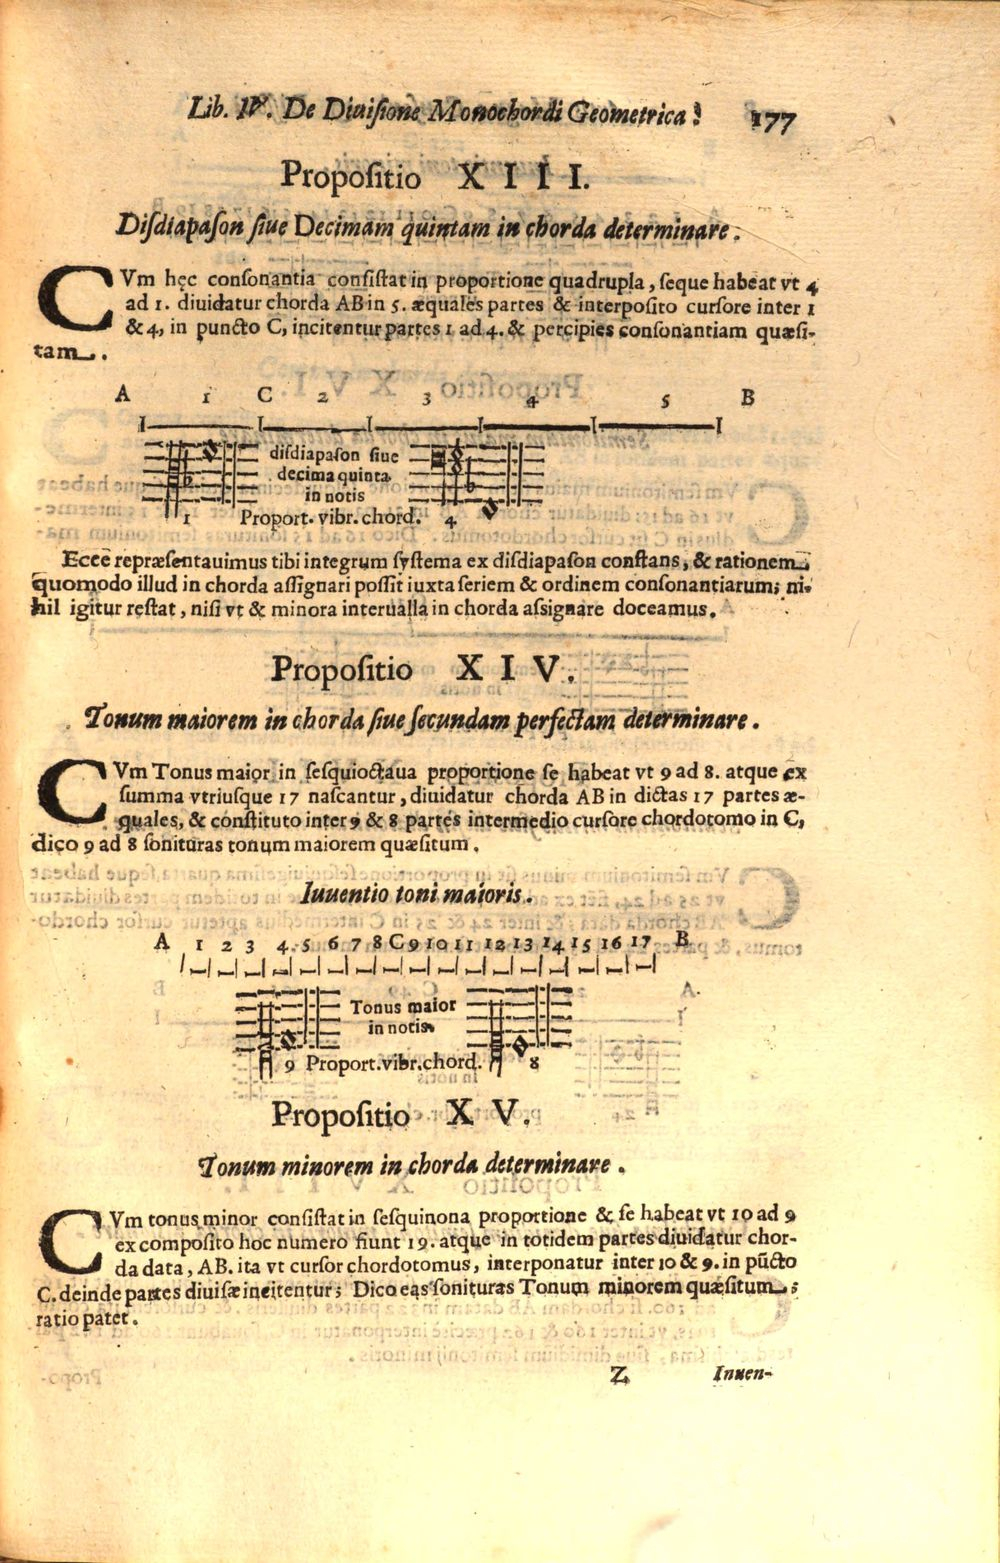 Lib. IV. De Diuiſione Monochordi Geometrica. 177
Propoſitio XIII.
Diſdiapaſon ſiue Decimam quintam in chorda determinare.
CVm hęc conſonantia conſiſtat in proportione quadrupla, ſeque habeat vt 4
ad 1. diuidatur chorda AB in 5. æquales partes & interpoſito curſore inter 1
& 4, in puncto C, incitentur partes 1 ad 4. & percipies conſonantiam quæſi-
tam.
A 1 C 2 3 4 5 B
diſdiapaſon ſiue
decima quinta
in notis
1 Proport. vibr. chord. 4
Eccè repræſentauimus tibi integrum ſyſtema ex diſdiapaſon conſtans, & rationem
quomodo illud in chorda aſſignari poſſit iuxta ſeriem & ordinem conſonantiarum; ni-
hil igitur reſtat, niſi vt & minora interualla in chorda aſsignare doceamus.
Propoſitio XIV.
Tonum maiorem in chorda ſiue ſecundam perfectam determinare.
CVm Tonus maior in ſeſquioctaua proportione ſe habeat vt 9 ad 8. atque ex
ſumma vtriuſque 17 naſcantur, diuidatur chorda AB in dictas 17 partes æ-
quales, & conſtituto inter 9 & 8 partes intermedio curſore chordotomo in C,
dico 9 ad 8 ſonituras tonum maiorem quæſitum.
Iuuentio toni maioris.
A 1 2 3 4 5 6 7 8 C 9 10 11 12 13 14 15 16 17 B
Tonus maior
in notis
9 Proport. vibr. chord. 8
Propoſitio XV.
Tonum minorem in chorda determinare.
CVm tonus minor conſiſtat in ſeſquinona proportione & ſe habeat vt 10 ad 9
ex compoſito hoc numero fiunt 19. atque in totidem partes diuidatur chor-
da data, AB. ita vt curſor chordotomus, interponatur inter 10 & 9. in pūcto
C. deinde partes diuiſæ incitentur; Dico eas ſonituras Tonum minorem quæſitum;
ratio patet.
Z Inuen-